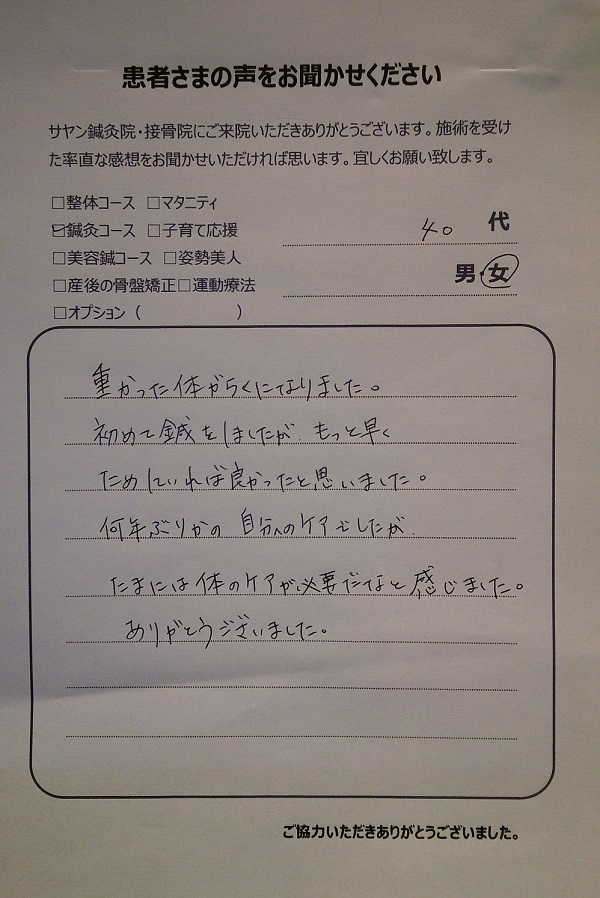 患者さまの声をお聞かせください
サヤン鍼灸院・接骨院にご来院いただきありがとうございます。施術を受け
た率直な感想をお聞かせいただければ思います。宜しくお願い致します。
□整体コース □マタニティ
☑鍼灸コース □子育て応援
40 代
□美容鍼コース □姿勢美人
男・女
□産後の骨盤矯正□運動療法
□オプション（　　　　　）
重かった体がらくになりました。
初めて鍼をしましたが、もっと早く
ためしていれば良かったと思いました。
何年ぶりかの 自分へのケアでしたが、
たまには体のケアが必要だなと感じました。
ありがとうございました。
ご協力いただきありがとうございました。